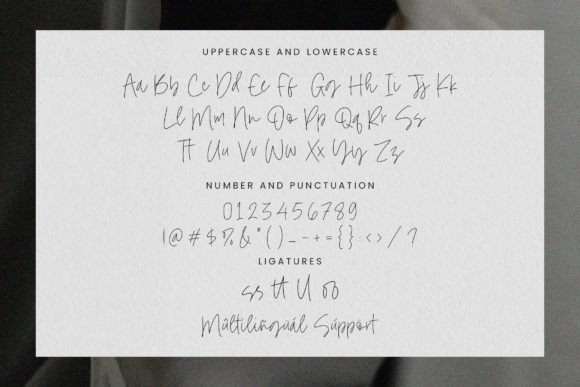 UPPERCASE AND LOWERCASE
Aa Bb Cc Dd Ee Ff Gg Hh Ii Jj Kk
Ll Mm Nn Oo Pp Qq Rr Ss
Tt Uu Vv Ww Xx Yy Zz
NUMBER AND PUNCTUATION
0123456789
!@#$%&*()_-+={}:<>/?
LIGATURES
ss tt ll oo
Máltilíngüál Súppört